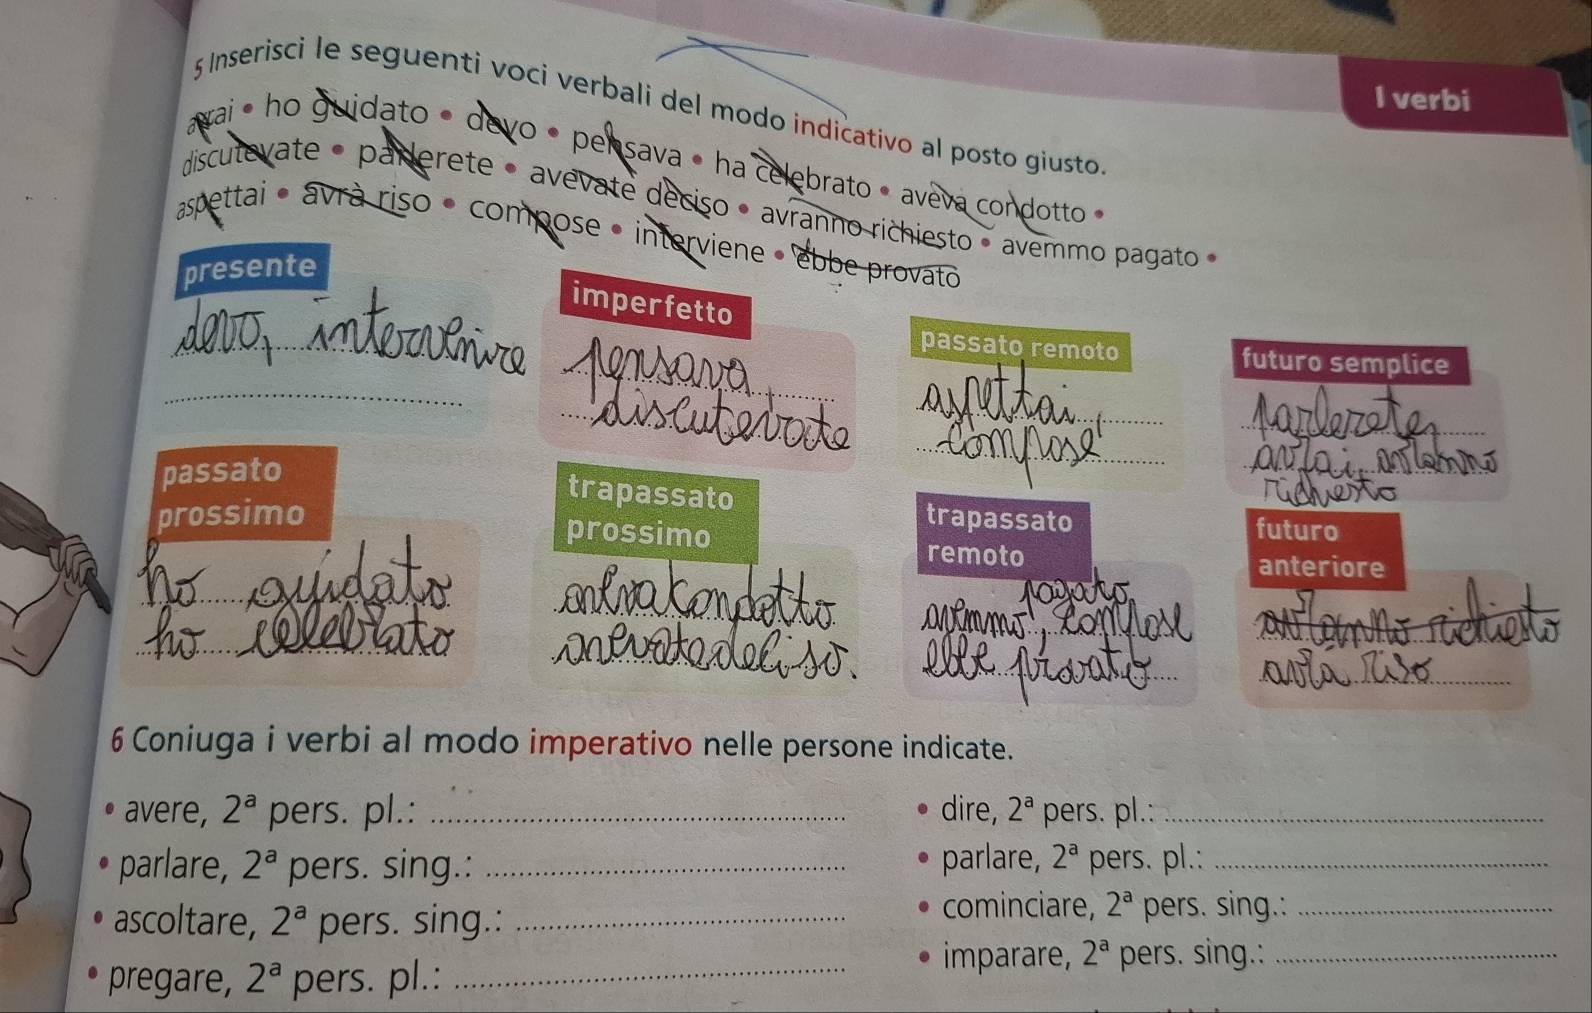 I verbi
5 Inserisci le seguenti voci verbali del modo indicativo al posto giusto.
avrai • ho guidato • devo • pensava • ha celebrato • aveva condotto •
discutevate • parlerete • avevate deciso • avranno richiesto • avemmo pagato •
aspettai • avrà riso • compose • interviene • ebbe provato
presente
devo, intervenire
imperfetto
pensava,
discutevate
passato remoto
aspettai,
compose
futuro semplice
parlerete,
avrai, avranno
richiesto
passato
prossimo
ho guidato
ho celebrato
trapassato
prossimo
condotto
deciso.
trapassato
remoto
pagato,
avemmo, compose
ebbe provato
futuro
anteriore
avranno richiesto
avrà riso
6 Coniuga i verbi al modo imperativo nelle persone indicate.
• avere, 2ª pers. pl.:
• parlare, 2ª pers. sing.:
• ascoltare, 2ª pers. sing.:
• pregare, 2ª pers. pl.:
• dire, 2ª pers. pl.:
• parlare, 2ª pers. pl.:
• cominciare, 2ª pers. sing.:
• imparare, 2ª pers. sing.: